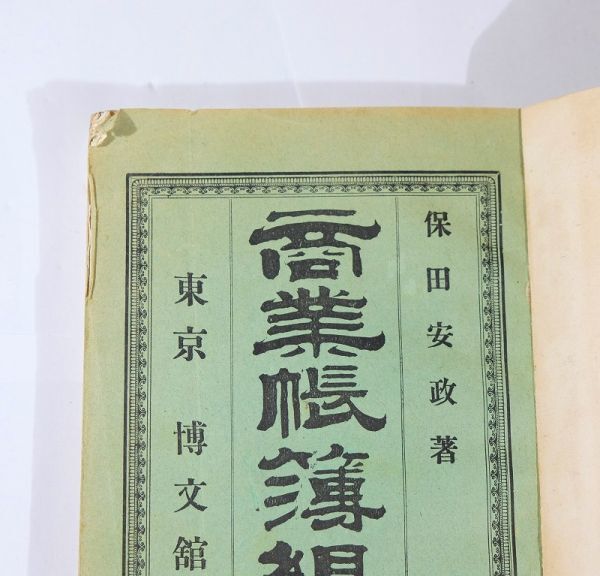 保田安政著
商業帳簿組
東京 博文舘